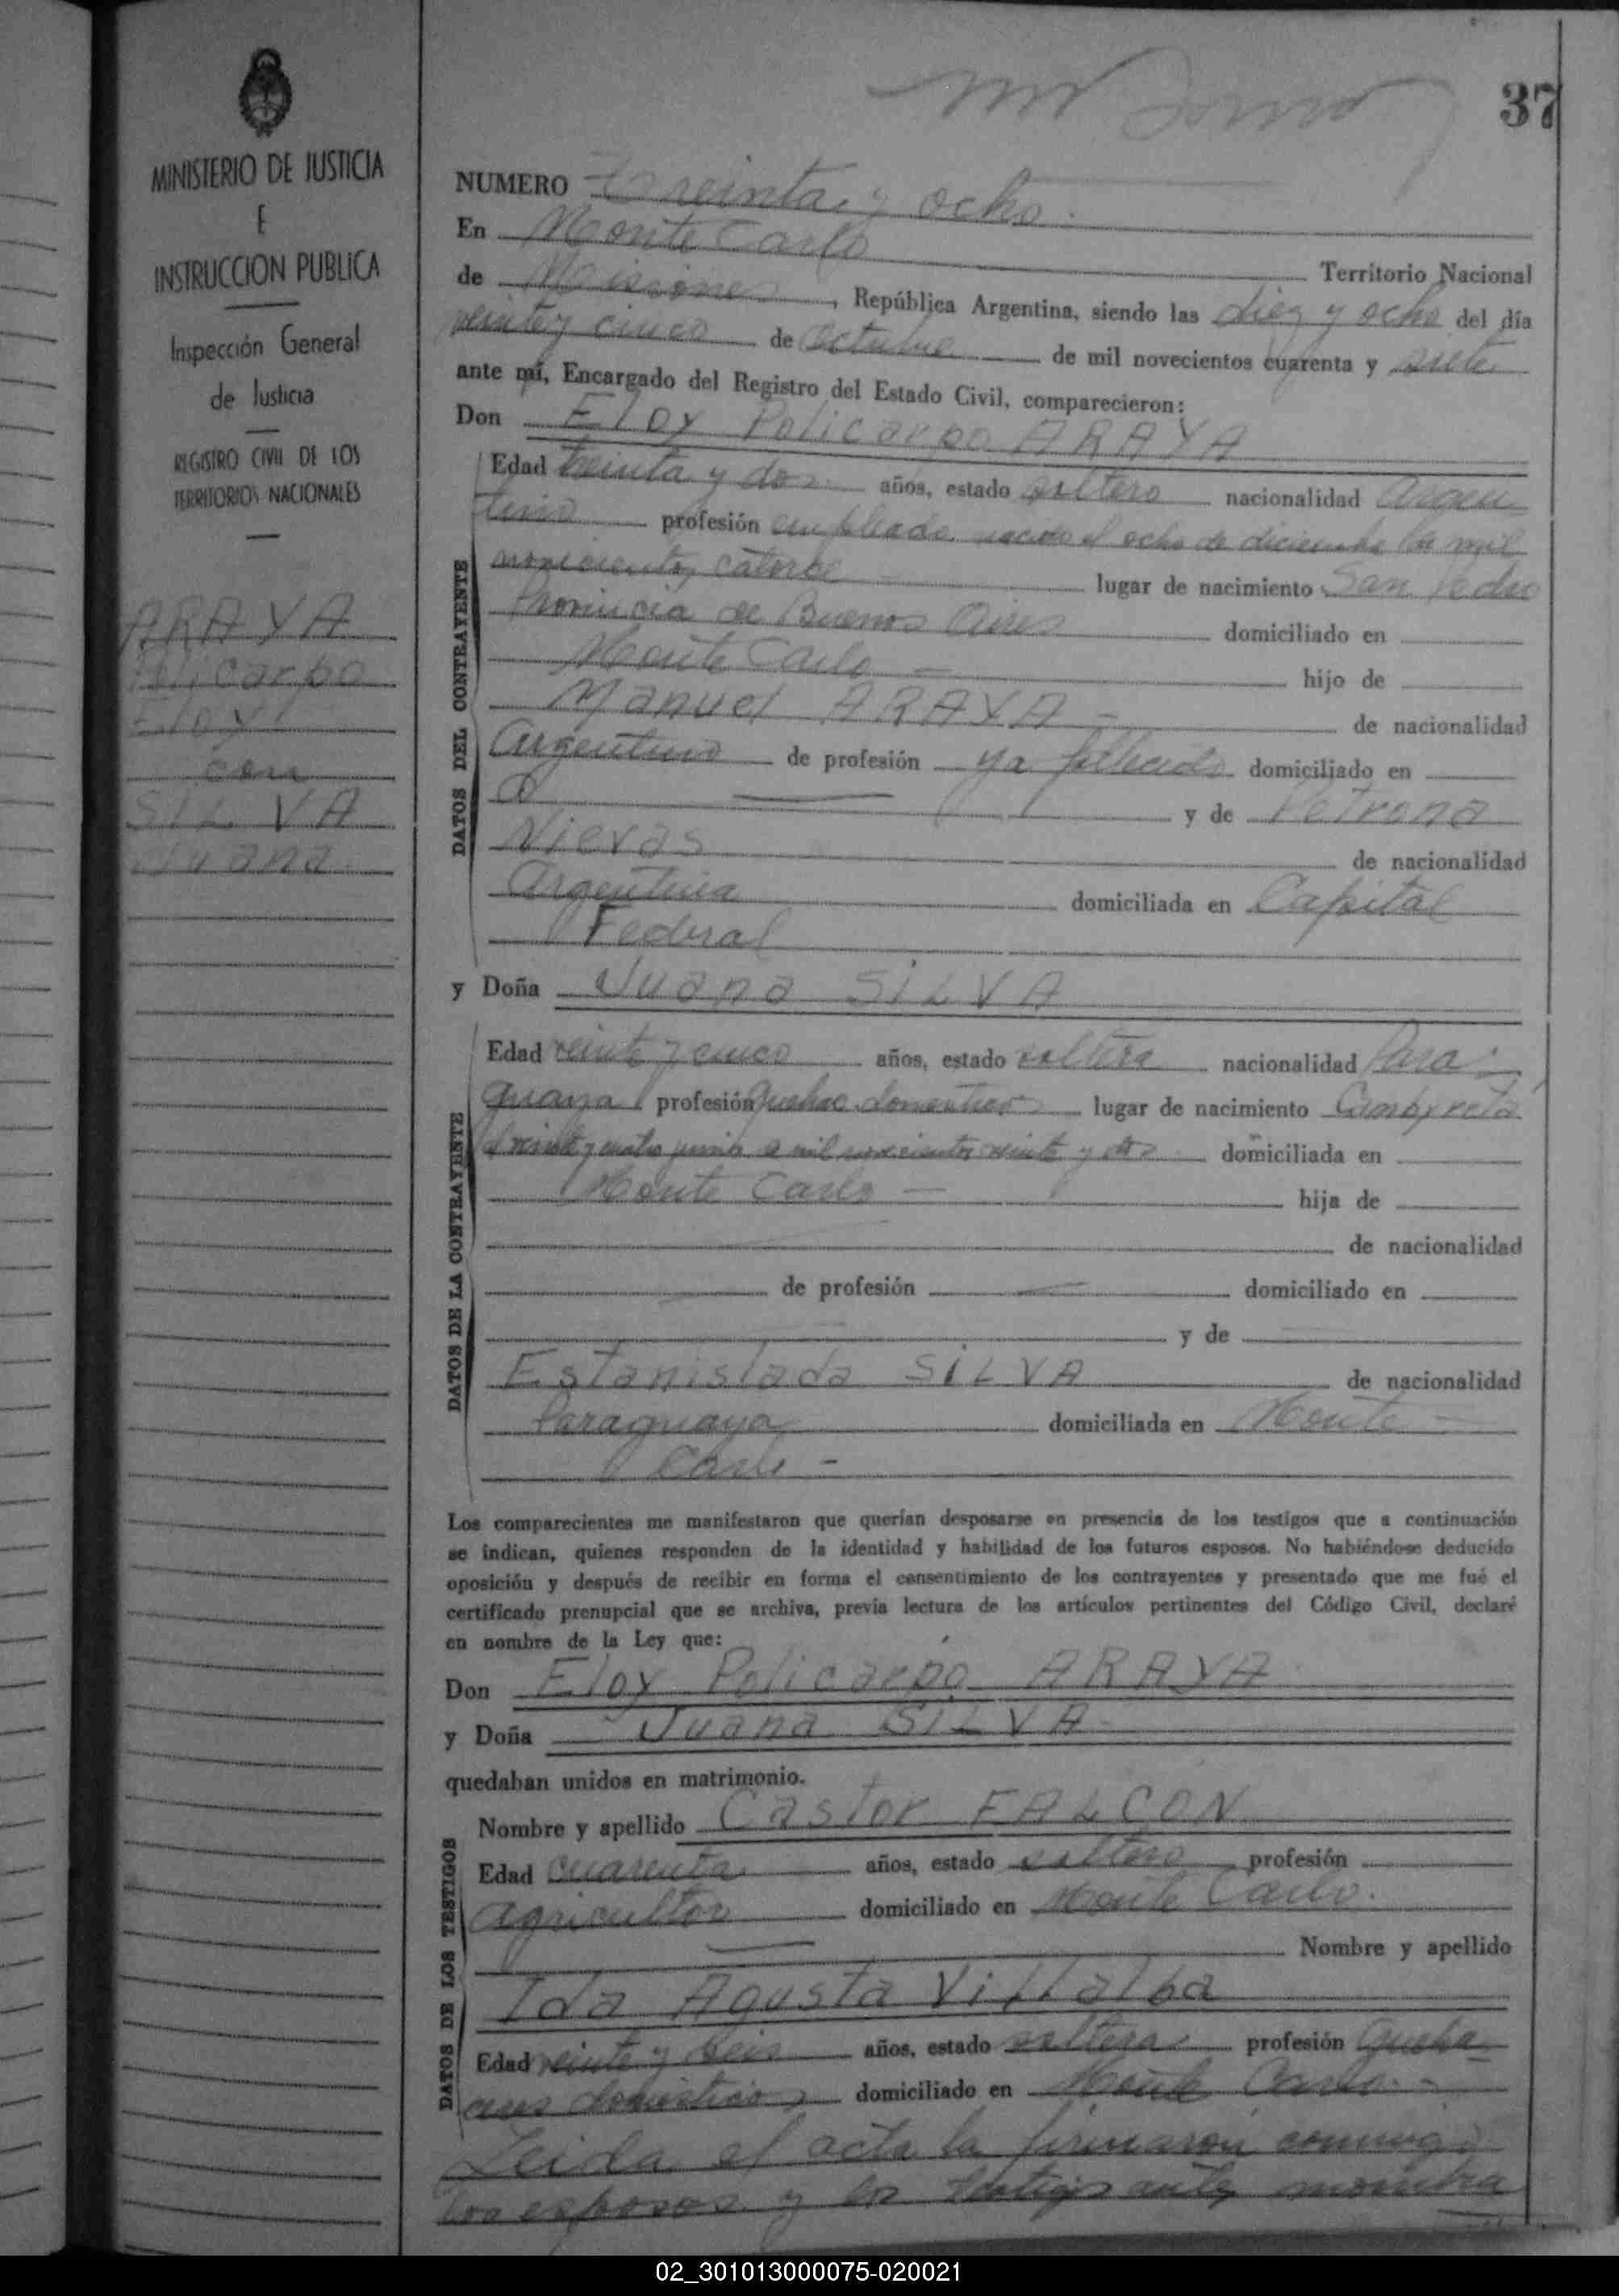 37
MINISTERIO DE JUSTICIA
E
INSTRUCCION PUBLICA
Inspección General
de Justicia
REGISTRO CIVIL DE LOS
TERRITORIOS NACIONALES
ARAYA
Policarpo
Eloy
con
SILVA
Juana
NUMERO Treinta y ocho.
En Monte Carlo
Territorio Nacional
de Misiones, República Argentina, siendo las diez y ocho del día
veinte y cinco de Octubre de mil novecientos cuarenta y siete
ante mí, Encargado del Registro del Estado Civil, comparecieron:
Don Eloy Policarpo ARAYA
DATOS DEL CONTRAYENTE
Edad treinta y dos años, estado soltero nacionalidad Argen
tino profesión empleado nacido el ocho de diciembre de mil
novecientos catorce lugar de nacimiento San Pedro
Provincia de Buenos Aires domiciliado en
Monte Carlo — hijo de
Manuel ARAYA - de nacionalidad
Argentino de profesión ya fallecido domiciliado en
y de Petrona
Nievas de nacionalidad
Argentina domiciliada en Capital
Federal
y Doña Juana SILVA
DATOS DE LA CONTRAYENTE
Edad veinte y cinco años, estado soltera nacionalidad Para-
guaya profesión quehac. domesticos lugar de nacimiento Cambyretá
el veinte y cuatro junio de mil novecientos veinte y dos domiciliada en
Monte Carlo — hija de
de nacionalidad
de profesión domiciliado en
y de
Estanislada SILVA de nacionalidad
Paraguaya domiciliada en Monte
Carlo -
Los comparecientes me manifestaron que querían desposarse en presencia de los testigos que a continuación
se indican, quienes responden de la identidad y habilidad de los futuros esposos. No habiéndose deducido
oposición y después de recibir en forma el consentimiento de los contrayentes y presentado que me fué el
certificado prenupcial que se archiva, previa lectura de los artículos pertinentes del Código Civil, declaré
en nombre de la Ley que:
Don Eloy Policarpo ARAYA
y Doña Juana SILVA-
quedaban unidos en matrimonio.
DATOS DE LOS TESTIGOS
Nombre y apellido Castor FALCON
Edad cuarenta años, estado soltero profesión
agricultor domiciliado en Monte Carlo.
Nombre y apellido
Ida Agusta Villalba
Edad veinte y seis años, estado soltera profesión queha-
ceres domesticos, domiciliado en Monte Carlo.-
Leida el acta la firmaron conmigo
los esposos y los testigos antes nombra
02_301013000075-020021